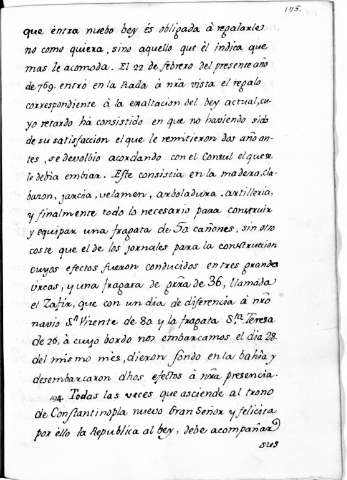 175.
que éntra nuebo bey és obligada à regalarle
no como quiera, sino aquello que èl indica que
mas le acomoda. El 22 de febrero del presente año
de 769. entrò en la Rada à nr̃a vista el regalo
correspondiente à la exaltacion del bey actual, cu-
yo retardo hà consistido en que no haviendo sido
de su satisfaccion el que le remitieron dos años an-
tes, se devolbio acordando con el Consul el que se
le debia embiar. Este consistia en la madera, cla-
bazon, jarcia, velamen, arboladura, artilleria,
y finalmente todo lo necesario para construir
y equipar una fragata de 50 cañones, sin otro
coste que el de los jornales para la construccion
cuyos efectos fueron conducidos en tres grandes
urcas, y una fragara de grr̃a de 36, llamada
el Zafir, que con un dia de diferencia à nr̃o
navio Sn. Vizente de 80 y la fragata Sta. Teresa
de 26, à cuyo bordo nos embarcamos el dia 28
del mismo mès, dieron fondo en la bahia y
desembarcaron dhos efectos à nr̃a presencia.
194. Todas las veces que asciende al trono
de Constantinopla nuevo Gran Señor y felicita
por ello la Republica al bey, debe acompañar
sus